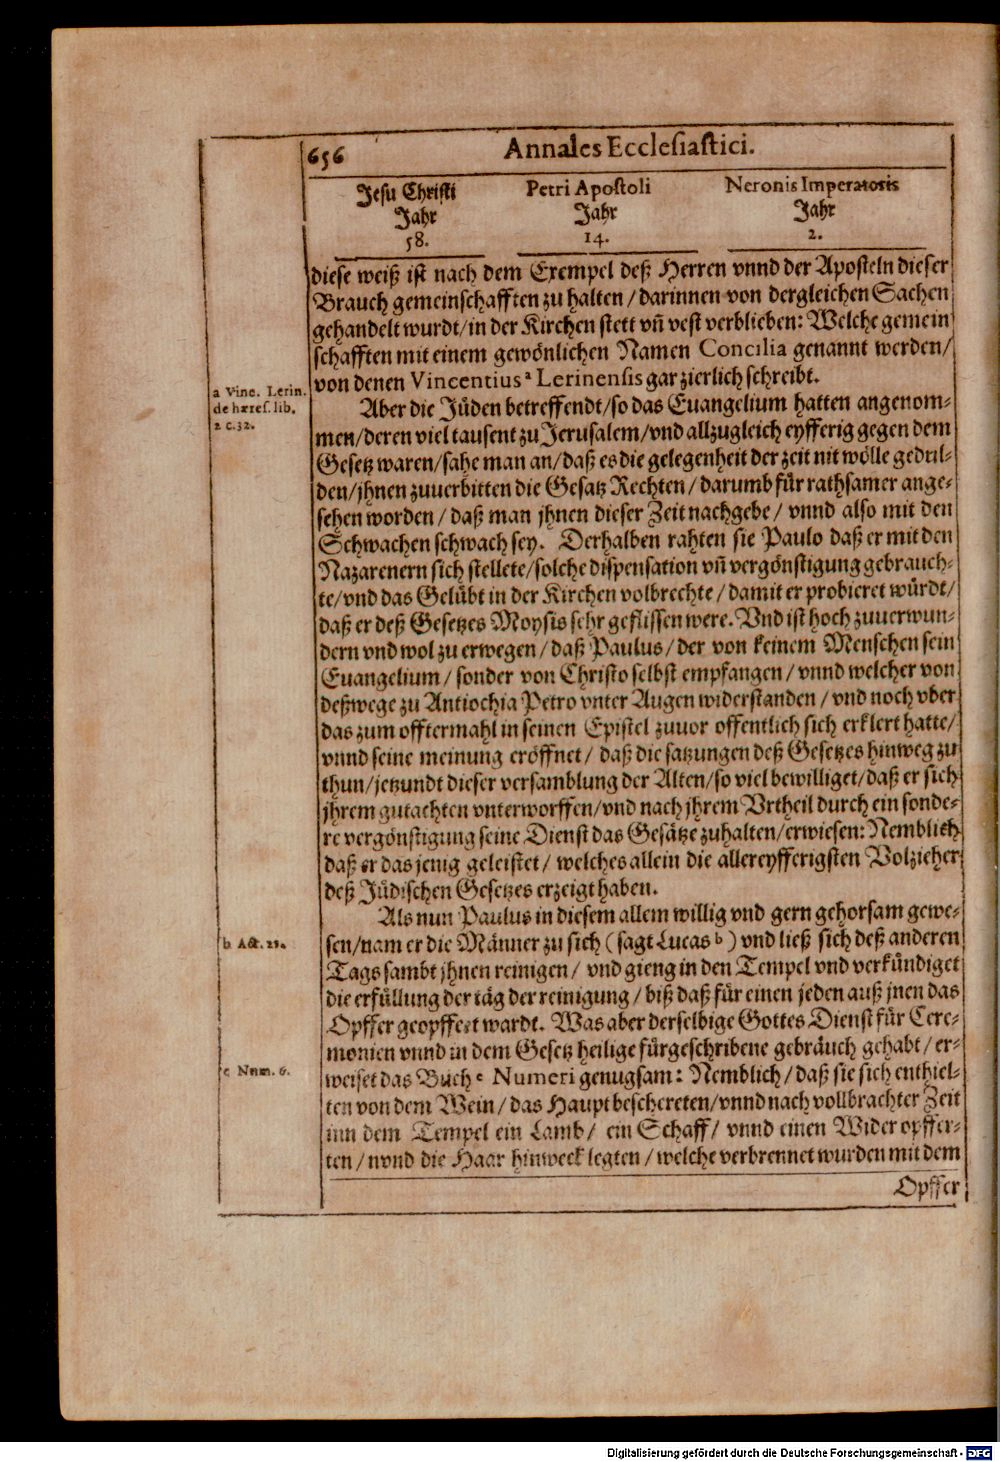 656
Annales Ecclesiastici.
Jesu Christi
Jahr
58.
Petri Apostoli
Jahr
14.
Neronis Imperatoris
Jahr
2.
diese weiß ist nach dem Exempel deß Herren vnnd der Aposteln dieser
Brauch gemeinschafften zu halten / darinnen von dergleichen Sachen
gehandelt wurdt / in der Kirchen stett vñ vest verblieben: Welche gemein
schafften mit einem gewönlichen Namen Concilia genannt werden /
von denen Vincentius ᵃ Lerinensis gar zierlich schreibt.
a Vinc. Lerin.
de hæref. lib.
2 c.32.
Aber die Jüden betreffendt / so das Euangelium hatten angenom-
men / deren viel tausent zu Jerusalem / vnd allzugleich eyfferig gegen dem
Gesetz waren / sahe man an / daß es die gelegenheit der zeit nit wölle gedul-
den / jhnen zuuerbitten die Gesatz Rechten / darumb für rathsamer ange-
sehen worden / daß man jhnen dieser Zeit nachgebe / vnnd also mit den
Schwachen schwach sey. Derhalben rahten sie Paulo daß er mit den
Nazarenern sich stellete / solche dispensation vñ vergönstigung gebrauch-
te / vnd das Gelübt in der Kirchen volbrechte / damit er probieret würdt /
daß er deß Gesetzes Moysis sehr geflissen were. Vnd ist hoch zuuerwun-
dern vnd wol zu erwegen / daß Paulus / der von keinem Menschen sein
Euangelium / sonder von Christo selbst empfangen / vnnd welcher von
deßwege zu Antiochia Petro vnter Augen widerstanden / vnd noch vber
das zum offtermahl in seinen Epistel zuuor offentlich sich erklert hatte /
vnnd seine meinung eröffnet / daß die satzungen deß Gesetzes hinweg zu
thun / jetzundt dieser versamblung der Alten / so viel bewilliget / daß er sich
jhrem gutachten vnterworffen / vnd nach jhrem Vrtheil durch ein sonde-
re vergönstigung seine Dienst das Gesätze zuhalten / erwiesen: Nemblich
daß er das jenig geleistet / welches allein die allereyfferigsten Volzieher
deß Jüdischen Gesetzes erzeigt haben.
Als nun Paulus in diesem allem willig vnd gern gehorsam gewe-
b Act. 21.
sen / nam er die Männer zu sich (sagt Lucas ᵇ) vnd ließ sich deß anderen
Tags sambt jhnen reinigen / vnd gieng in den Tempel vnd verkündiget
die erfüllung der täg der reinigung / biß daß für einen jeden auß jnen das
Opffer geopffert wardt. Was aber derselbige Gottes Dienst für Cere-
monien vnnd in dem Gesetz heilige fürgeschribene gebräuch gehabt / er-
c Num. 6.
weiset das Buch ᶜ Numeri genugsam: Nemblich / daß sie sich enthiel-
ten von dem Wein / das Haupt beschereten / vnnd nach vollbrachter Zeit
inn dem Tempel ein Lamb / ein Schaff / vnnd einen Wider opffer-
ten / nvnd die Haar hinweck legten / welche verbrennet wurden mit dem
Opffer
Digitalisierung gefördert durch die Deutsche Forschungsgemeinschaft - DFG